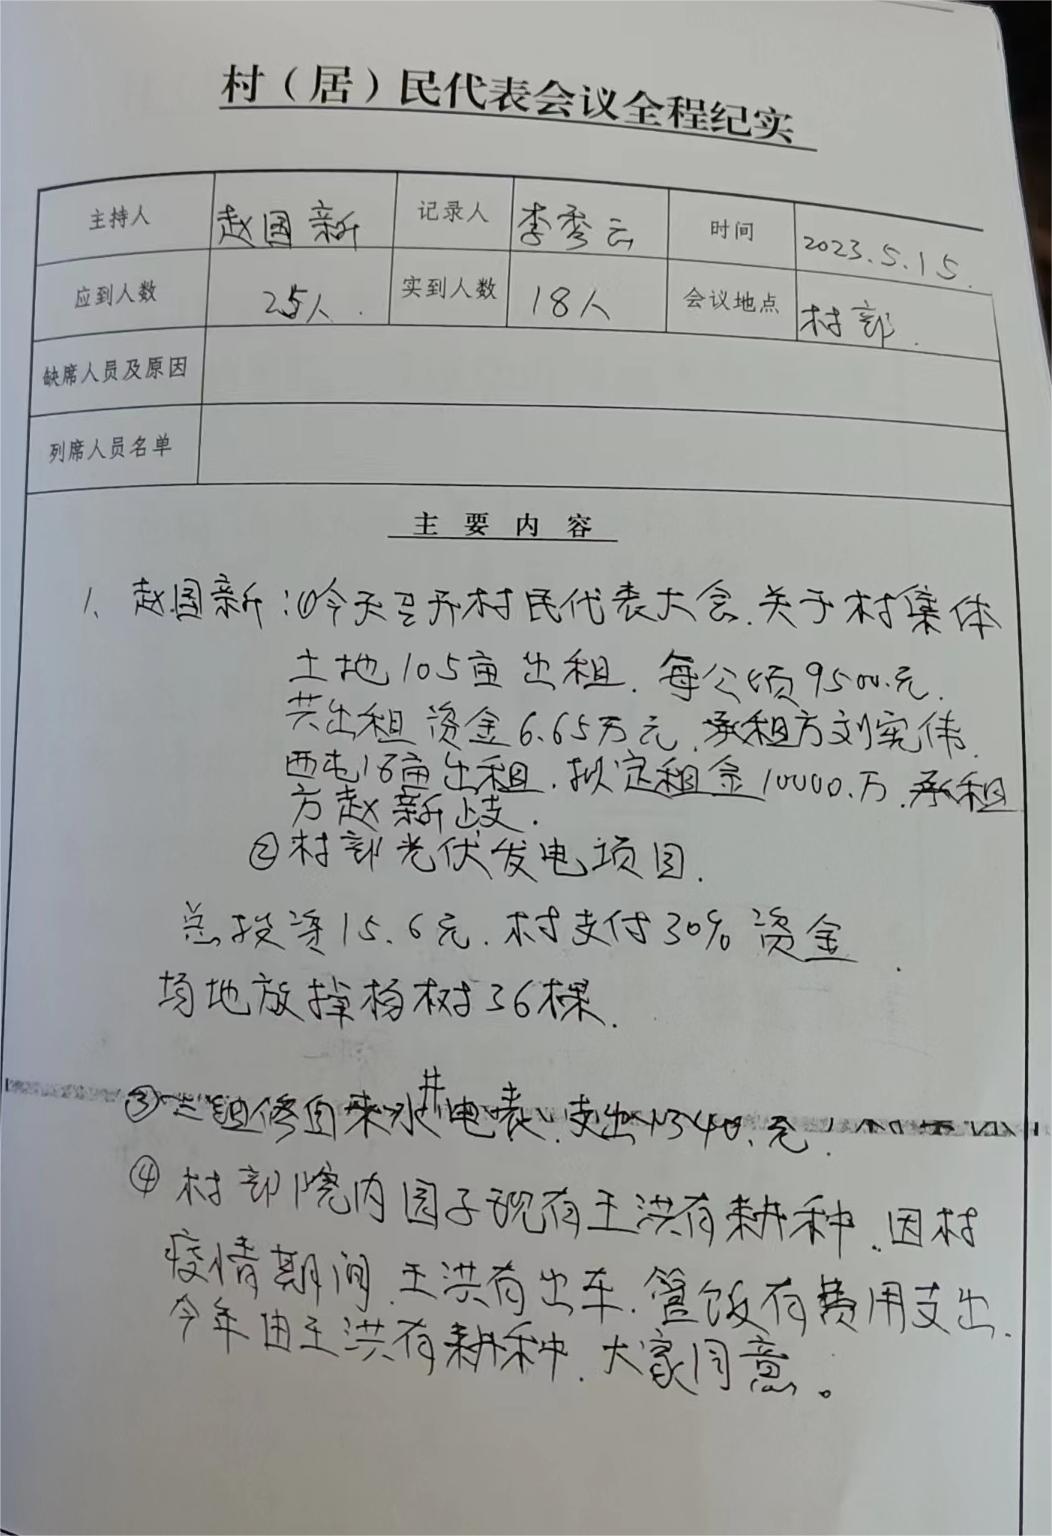 村（居）民代表会议全程纪实
主持人 赵国新 记录人 李秀云 时间 2023.5.15.
应到人数 25人. 实到人数 18人 会议地点 村部.
缺席人员及原因
列席人员名单
主要内容
1、赵国新：①今天召开村民代表大会.关于村集体
土地105亩出租.每公顷9500.元.
共出租资金6.65万元.承租方刘宪伟.
西屯16亩出租.拟定租金10000.万.承租
方赵新歧.
②村部光伏发电项目.
总投资15.6元.村支付30%资金.
场地放掉杨树36棵.
③二组修自来水井电表.支出1340.元.
④村部院内园子现有王洪有耕种.因村
疫情期间.王洪有出车.管饭有费用支出.
今年由王洪有耕种.大家同意。